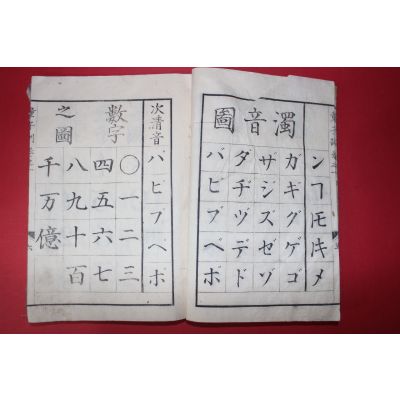 ンヿ𪜈キメ
濁音圖
ガギグゲゴ
ザジズゼゾ
ダヂヅデド
バビブベボ
次清音
パピプペポ
數字之圖
〇一二三
四五六七
八九十百
千万億